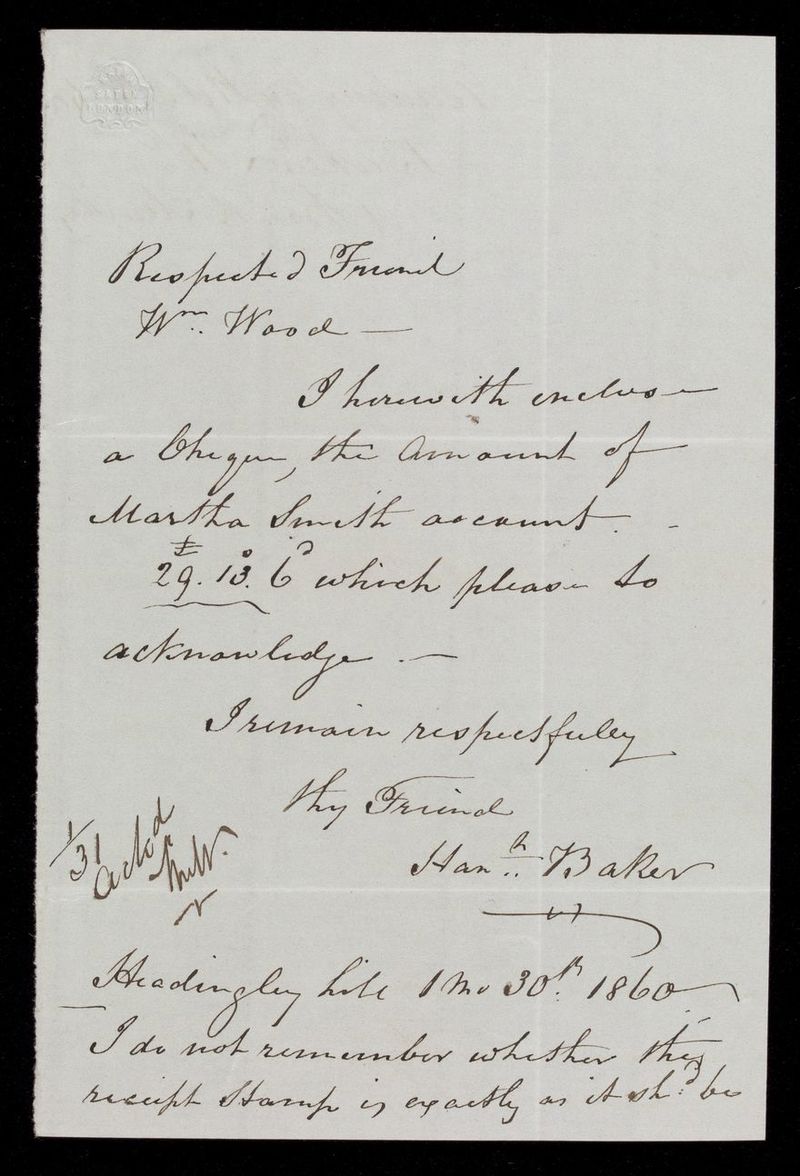 SATIN
LONDON
Respected Friend
Wm. Wood —
I herewith enclose
a Cheque, the Amount of
Martha Smith account. -
£ s d
29. 13. 6 which please to
acknowledge. —
I remain respectfuley
thy Friend
Hanh. Baker
1/31
ackd
Headingley hill 1 Mo 30th. 1860
I do not remember whether the
receipt Stamp is exactly as it shd. be